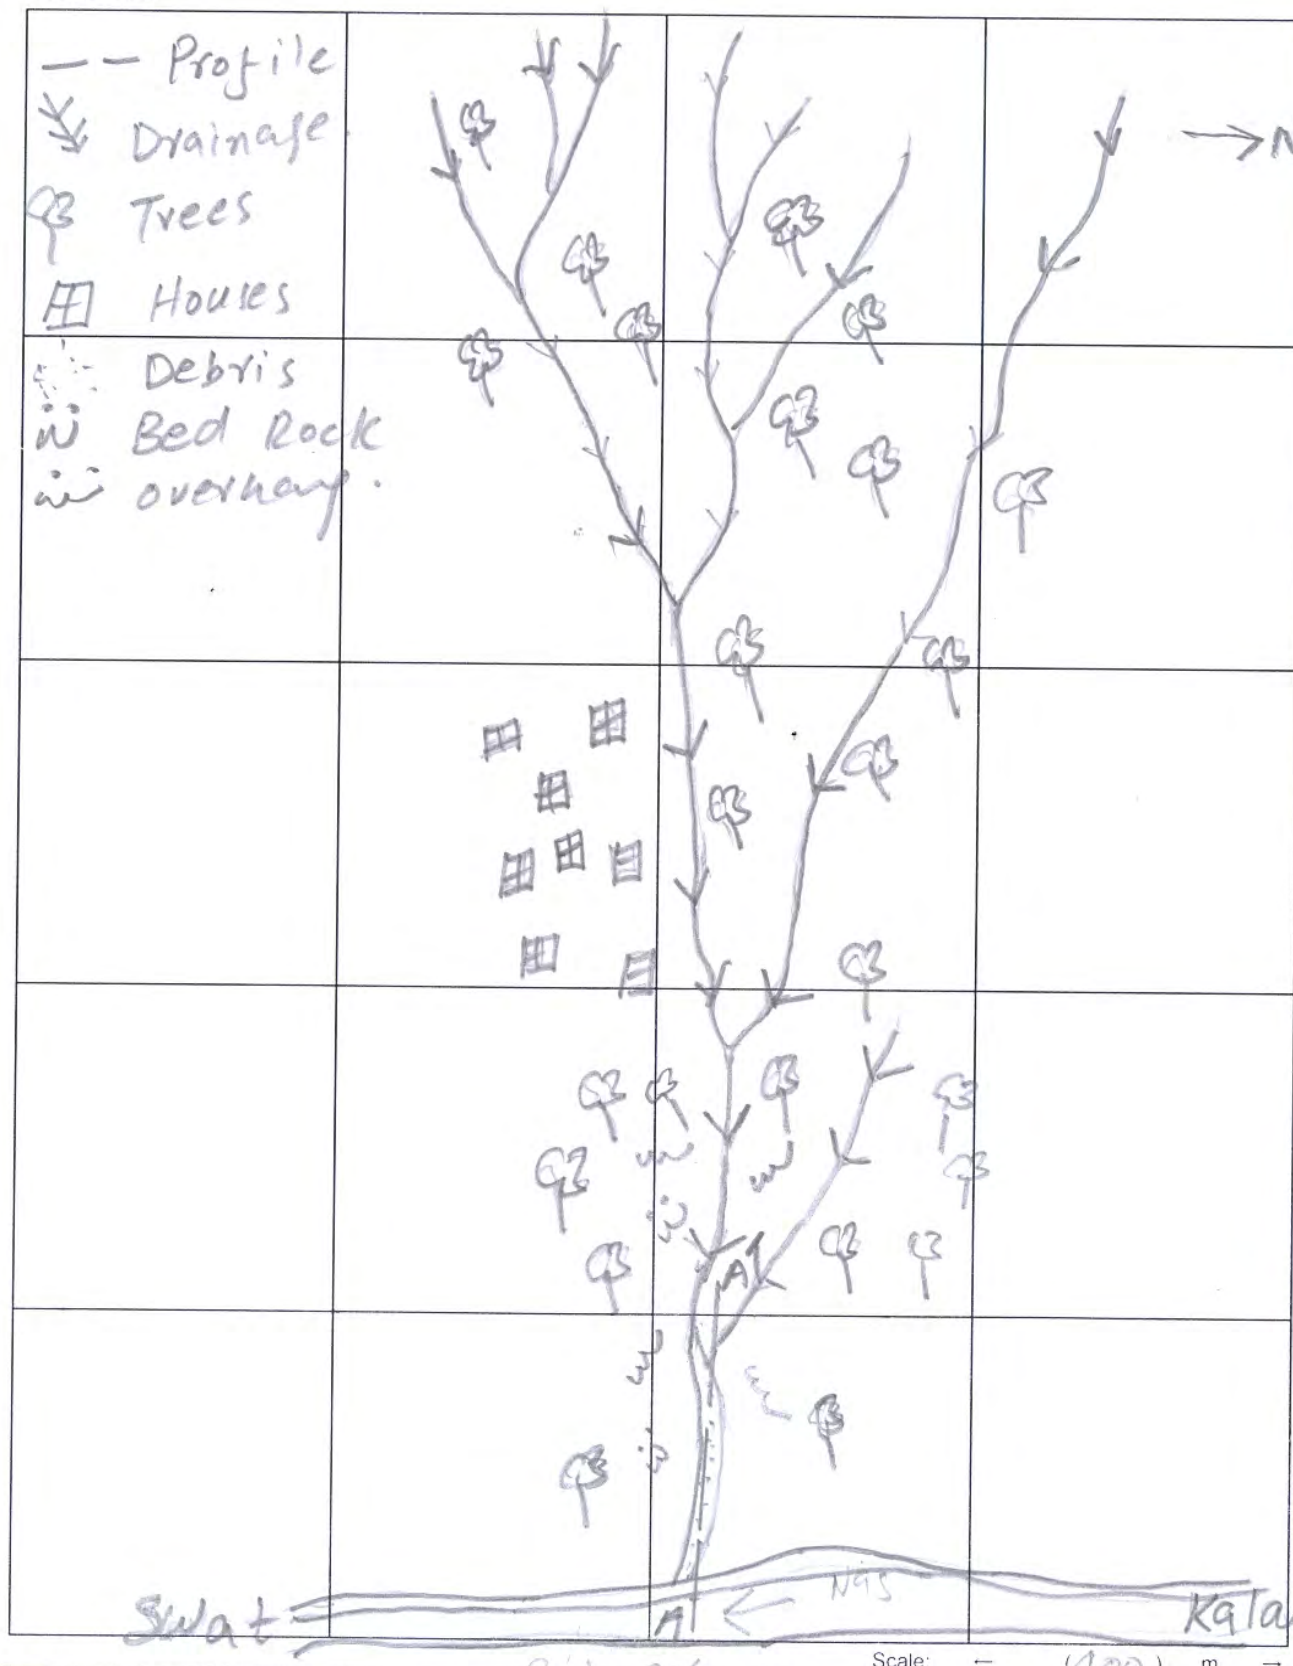 Profile
Drainage
Trees
Houses
Debris
Bed Rock
overhang.
A
N95
Swat
A
Kala
Scale: ← (100) m →